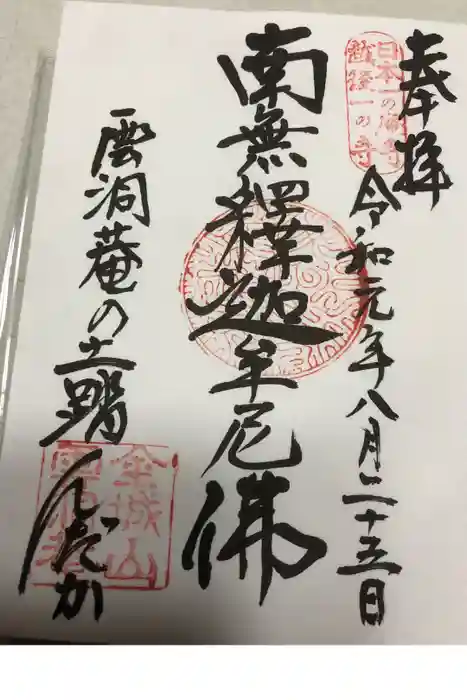 奉拝
日本一の庭寺
越後一の寺
令和元年八月二十五日
南無釋迦牟尼佛
雲洞菴の土踏んだか
金城山
雲洞菴